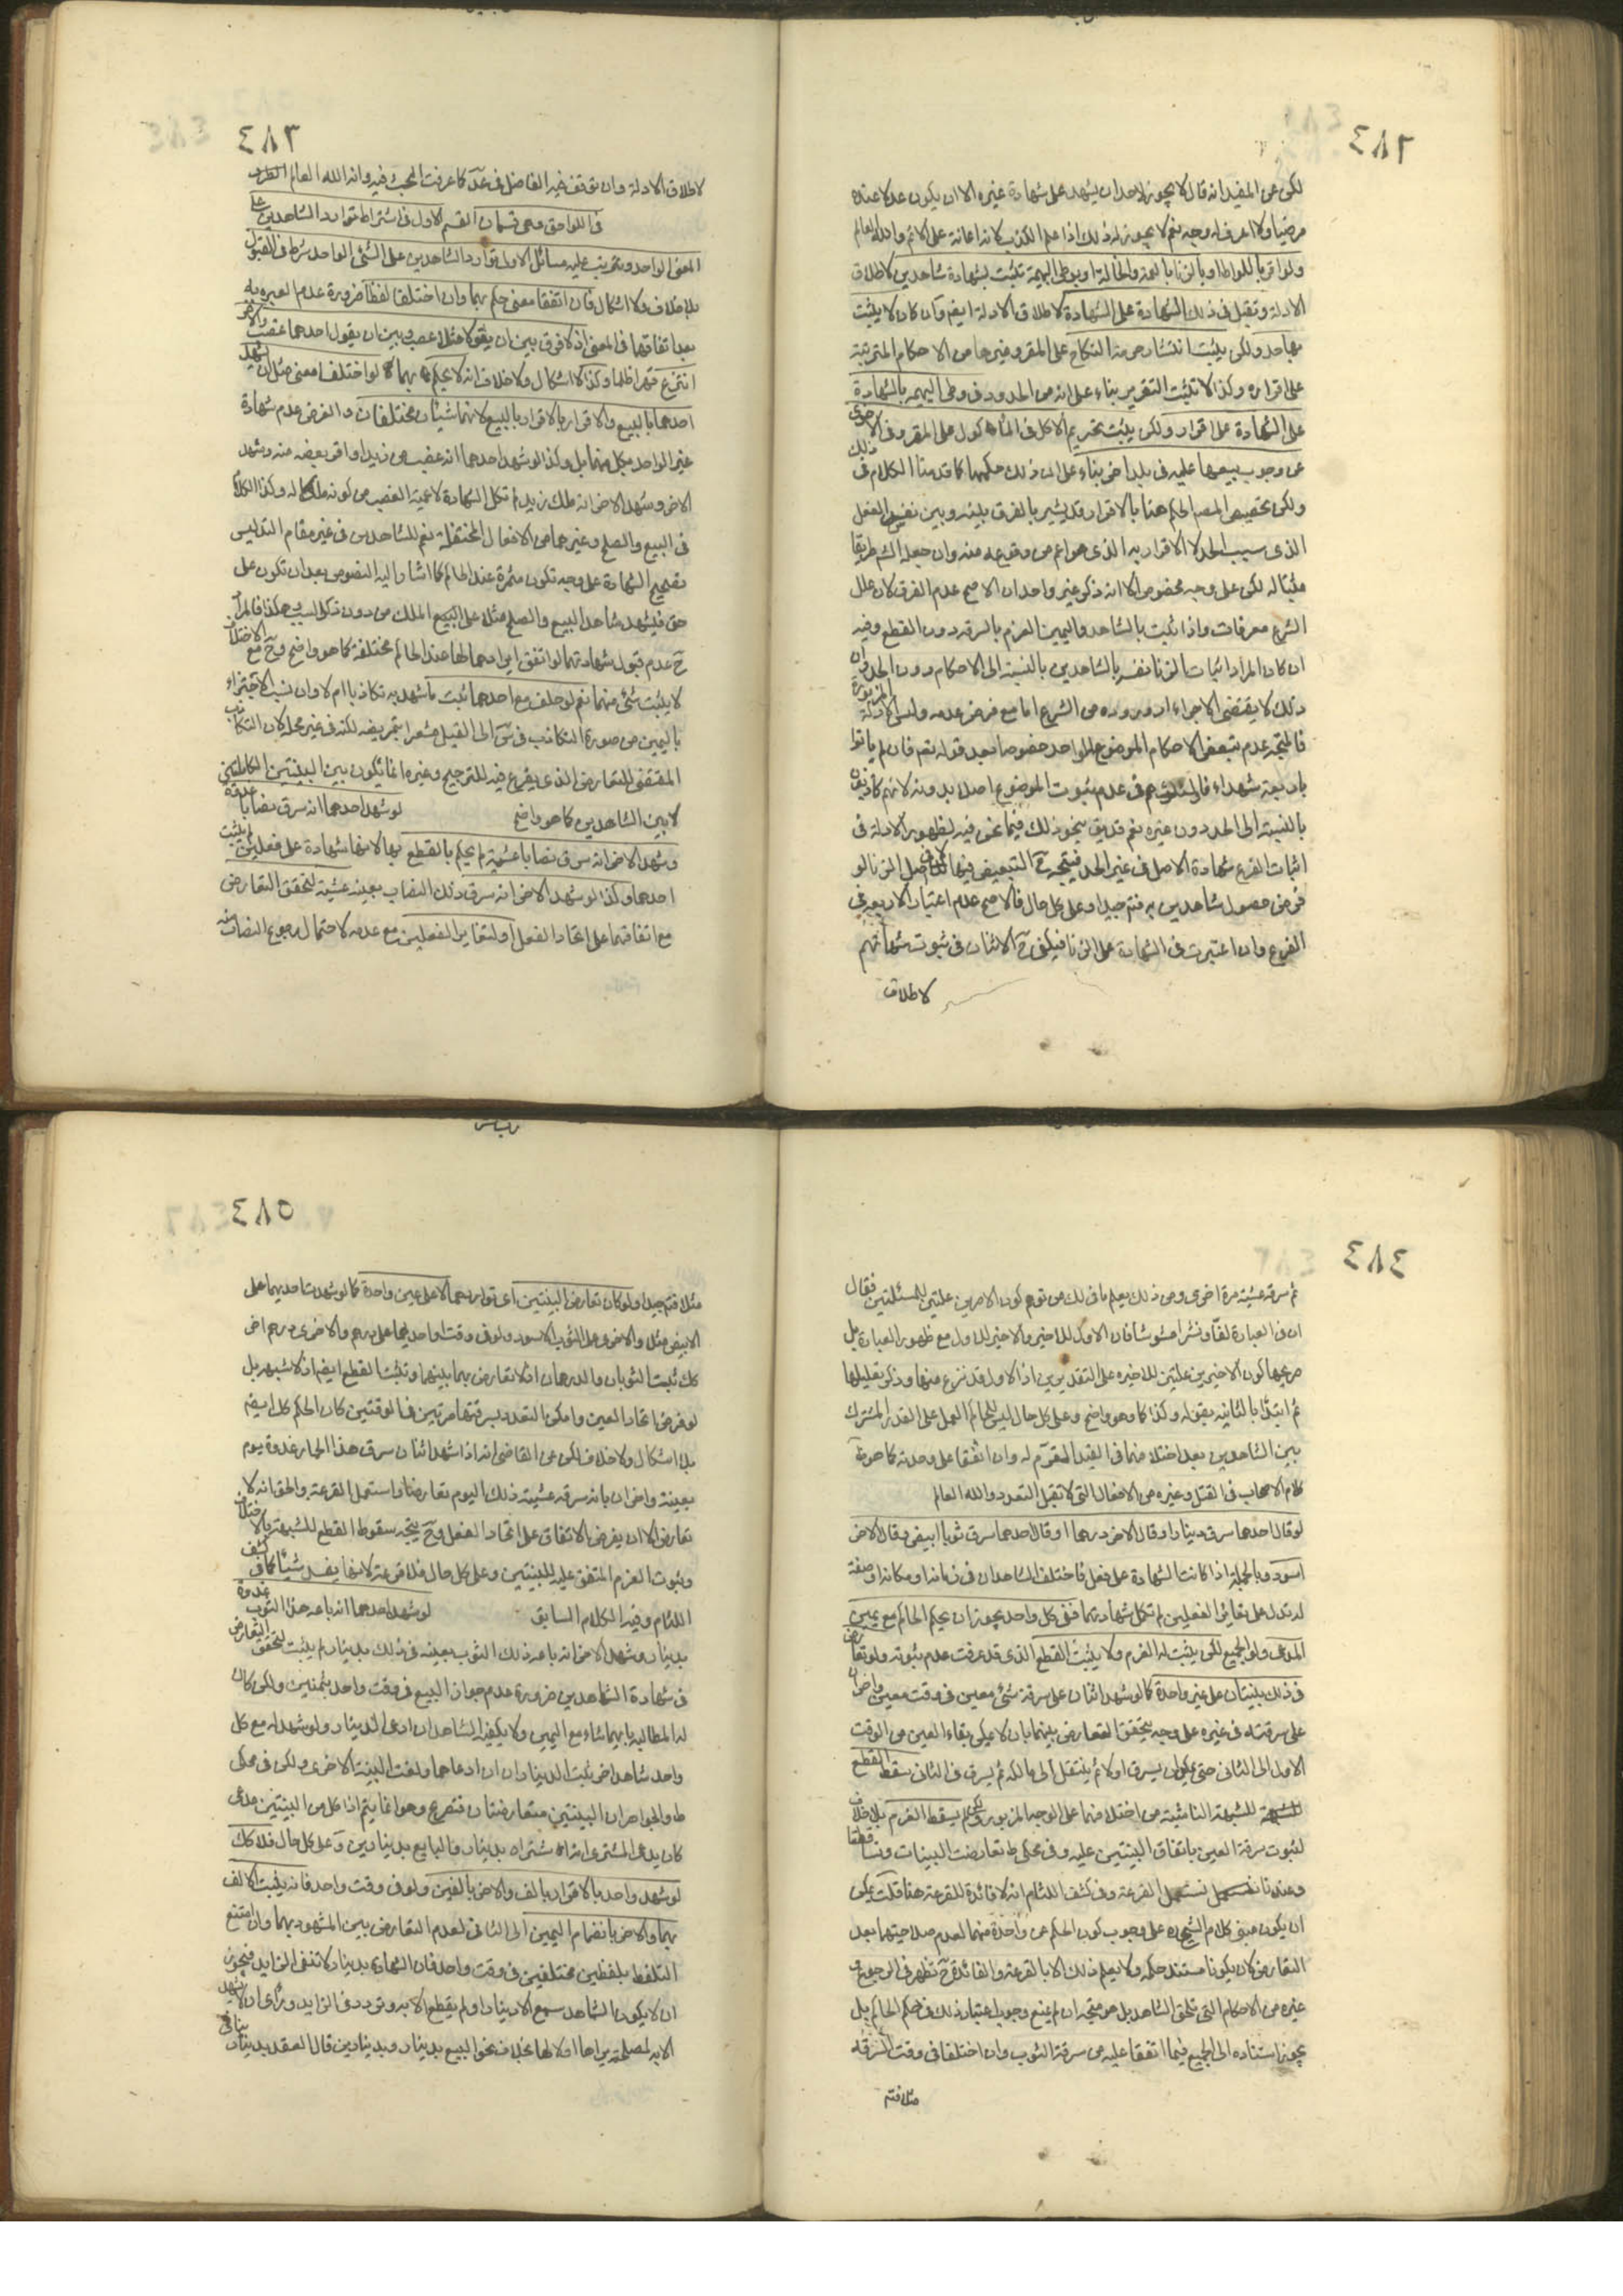 ٤٨٢
لكن عن المفيد انه قال لا يجوز لاحد ان يشهد على شهادة غيره الا ان يكون عدلا عنده
مرضيا ولا اعرف له وجه نعم لا يجوز له ذلك اذا علم الكذب لانه اعانة على الاثم والله العالم
ولو اقر باللواط او بالزنا بالعمة والخالة او بوطى البهيمة تثبت بشهادة شاهدين لاطلاق
الادلة وتقبل فى ذلك الشهادة على الشهادة لاطلاق الادلة ايضا وان كان لا يثبت
بها حد ولكن يثبت انتشار حرمة النكاح على المقر وغيرها من الاحكام المترتبة
على اقراره وكذا لا تثبت التعزير بناء على انه من الحدود فى وطى البهيمة بالشهادة
على الشهادة على اقرار ولكن يثبت تحريم الاكل فى المأكول على المقر وفى الاخرى
عن وجوب بيعها عليه فى بلد اخر بناء على ان ذلك حكمهما كما قدمنا الكلام فى ذلك
ولكن تخصيص المصنف الحكم هنا بالاقرار قد يشير بالفرق بينه وبين نفس الفعل
الذى سبب الحد لا الاقرار به الذى هو اعم من وقوعه منه وان جعله الشارع طريقا
مثبتا له لكن على وجه مخصوص الا انه ذكر غير واحد ان الاصح عدم الفرق لان علل
الشرع معرفات واذا تثبت بالشاهد واليمين الغرم بالسرقة دون القطع وفيه
ان كان المراد اثبات الزنا نفسه بالشاهدين بالنسبة الى الاحكام دون الحد فان
ذلك لا يقتضى الاجزاء اذ وروده من الشرع اما مع فرض عدمه وليس الا الادلة المزبورة
فالمتجه عدم تبعض الاحكام الموضوع الواحد خصوصا بعد قوله تعالى فان لم ياتوا
باربعة شهداء فاولئك هم فى عدم ثبوت الموضوع اصلا بدونه لانهم كاذبون
بالنسبة الى الحد دون غيره نعم قد يق بنحو ذلك فيما نحن فيه لظهور الادلة فى
اثبات الفرع شهادة الاصل فى غير الحد فيتجه ح التبعيض فيها لا فى اصل الزنا لو
فرض حصول شاهدين به فتم جيدا وعلى كل حال فالاصح عدم اعتبار الاربعة فى
الفرع وان اعتبرت فى الشهادة على الزنا فيكفى ح الاثنان فى ثبوت شهادتهم
لاطلاق
٤٨٣
لاطلاق الادلة وان توقف فيه الفاضل فى عد كما عرفت البحث فيه والله العالم الطرف
فى اللواحق وهى قسمان القسم الاول فى اشتراط توارد الشاهدين على
المعنى الواحد ويترتب عليه مسائل الاولى توارد الشاهدين على الشئ الواحد شرط فى القبول
بلا خلاف ولا اشكال فان اتفقا معنى حكم بهما وان اختلفا لفظا ضرورة عدم العبرة به
بعد اتفاقهما فى المعنى اذ لا فرق بين ان يقولا مثلا غصب وبين ان يقول احدهما غصب والاخر
انتزع قهرا ظلما وكذا لا اشكال ولا خلاف انه لا يحكم بهما لو اختلفا معنى مثل ان يشهد
احدهما بالبيع والاقرار بالاقرار بالبيع لانهما شيئان مختلفان والفرض عدم شهادة
غير الواحد بكل منهما بل وكذا لو شهد احدهما انه غصب من زيد او اقر بغصبه منه وشهد
الاخر وشهد الاخر انه ملك زيد لم تكمل الشهادة لاعمية الغصب من كونه ملكا له وكذا الكلام
فى البيع والصلح وغيرهما من الافعال المختلفة نعم للشاهدين فى غير مقام التدليس
تصحيح الشهادة على وجه تكون مثمرة عند الحاكم كما اشار اليه النصوص بعد ان تكون على
حق فيشهد شاهد البيع والصلح مثلا على البيع الملك من دون ذكر السبب وهكذا فالمراد
ح عدم قبول شهادتهما لو اتفق ايرادهما لها عند الحاكم مختلفة كما هو واضح وح مع الاختلاف
لا يثبت شئ منهما نعم لو حلف مع احدهما ثبت ما شهد به تكاذبا ام لا وان نسب الاجتزاء
باليمين من صورة التكاذب فى س الى القيل مشعرا بتمريضه لكنه فى غير محله لان التكاذب
المقتضى للتعارض الذى يفرع فيه للترجيح وغيره انما تكون بين البينتين الكاملتين
لا بين الشاهدين كما هو واضح لو شهد احدهما انه سرق نصابا غدوة
وشهد الاخر انه سرق نصابا عشية لم يحكم بالقطع بها لانها شهادة على فعلين لم يثبت
احدهما وكذا لو شهد الاخر انه سرق ذلك النصاب بعينه عشية لتحقق التعارض
مع اتفاقهما على اتحاد الفعل او لتغاير الفعلين مع عدمه لاحتمال رجوع النصاب منه
٤٨٤
ثم سرقه عشية مرة اخرى ومن ذلك يعلم ما فى لك من توهم كون الامرين علتين للمسئلتين فقال
ان فى العبارة لفا ونشرا مشوشا فان الاول للاخير والاخير للاول مع ظهور العبارة بل
صريحها كون الاخيرين علتين للاخيره على التقديرين اذ الاول قد فرغ منها وذكر تعليلها
ثم ابتدأ بالثانيه بقوله وكذا كما هو واضح وعلى كل حال ليس للحاكم العمل على القدر المشترك
بين الشاهدين بعد اختلافهما فى القيد المقوم له وان اتفقا على وحدته كما هو
كلام الاصحاب فى القتل وغيره من الافعال التى لا تقبل التعدد والله العالم
لو قال احدهما سرق دينارا وقال الاخر درهما او قال احدهما سرق ثوبا ابيض وقال الاخر
اسود وبالجملة اذا كانت الشهادة على فعل فاختلف الشاهدان فى زمانه او مكانه او صفة
له تدل على تغاير الفعلين لم تكمل شهادتهما ففى كل واحد يجوز ان يحكم الحاكم مع يمين
المدعى ولو الجميع لكن يثبت له الغرم ولا يثبت القطع الذى قد عرفت عدم ثبوته ولو تعارض
فى ذلك بينتان على عين واحدة كما لو شهد اثنان على سرقة شئ معين فى وقت معين واخران
على سرقته فى غيره على وجه يتحقق التعارض بينهما بان لا يمكن بقاء العين من الوقت
الاول الى الثانى حتى يمكن ان يسرق اولا ثم ينتقل الى مالكه ثم يسرق فى الثانى سقط القطع
للشبهة الناشية من اختلافهما على الوجه المزبور ولكن لم يسقط الغرم بلا خلاف
لثبوت سرقة العين باتفاق البينتين عليه وفى محكى ط تعارضت البينات وتساقطتا
وعندنا نستعمل القرعة وفى كشف اللثام انه لا فائدة للقرعة هنا قلت يمكن
ان يكون مبنى كلام الشيخ ره على وجوب كون الحكم عن واحدة منهما لعدم صلاحيتهما بعد
التعارض لان يكونا مستند حكمه ولا يعلم ذلك الا بالقرعة والفائدة ح تظهر فى الرجوع و
غيره من الاحكام التى تلحق الشاهد بل هو متجه ان لم يمنع وجوب اعتبار ذلك فى حكم الحاكم بل
يجوز استناده الى الجميع فيما اتفقا عليه من سرقة الثوب وان اختلفا فى وقت السرقة
مثلا فتم
٤٨٥
مثلا فتم جيدا ولو كان تعارض البينتين اى تواردهما لا على عين واحدة كما لو شهدت احديهما على
الابيض مثلا والاخرى على الثوب الاسود ولو فى وقت او احديهما على درهم والاخرى درهم اخر
كك ثبت الثوبان والدرهمان اذ لا تعارض بهما بينهما وتثبت القطع ايضا اذ لا شبهة بل
لو فرض اتحاد العين وامكن التعدد بسرقتها مرتين فى الوقتين كان الحكم كك ايضا
بلا اشكال ولا خلاف لكن عن القاضى انه اذا شهد اثنان سرق هذا الحمار غدوة يوم
بعينه واخران بانه سرقه عشية ذلك اليوم تعارضتا واستعمل القرعة والحق انه لا
تعارض الا ان يفرض الاتفاق على اتحاد الفعل وح يتجه سقوط القطع للشبهة بالاختلاف
وثبوت الغرم المتفق عليه للبينتين وعلى كل حال فلا قرعة لانها يفسد شيئا كما فى كشف
اللثام وفيه الكلام السابق لو شهد احدهما انه باعه هذا الثوب غدوة
بدينار وشهد الاخر انه باعه ذلك الثوب بعينه فى ذلك بدينارين لم يثبت لتحقق التعارض
فى شهادة الشاهدين ضرورة عدم جواز البيع فى وقت واحد بثمنين ولكن كان
له المطالبة بايهما شاء مع اليمين ولا يكفيه الشاهدان ادعى الدينار ولو شهد له مع كل
واحد شاهد اخر ثبت الديناران ان ادعاهما ولغت البينة الاخرى ولكن فى محكى
ط والجواهر ان البينتين متعارضتان فتقرع وهو انما يتم اذا كل من البينتين مدعى
كان يدعى المشترى اشتراه بدينار والبايع بدينارين وعلى كل حال فلا كك
لو شهد واحد بالاقرار بالف والاخر بالفين ولو فى وقت واحد فانه يثبت الالف
بهما والاخر بانضمام اليمين الى الثانى لعدم التعارض بين المشهود بهما وان امتنع
التلفظ بلفظين مختلفين فى وقت واحد فان الشهادة بدينار لا تنفى الزايد فيجوز
ان لا يكون الشاهد سمع الا دينارا ولم يقطع الا به وتردد فى الزايد ورأى ان لا يشهد
الا به لمصلحة يراها اولا لها بخلاف نحو البيع بدينار وبدينارين قال العقد بدينار ينافى